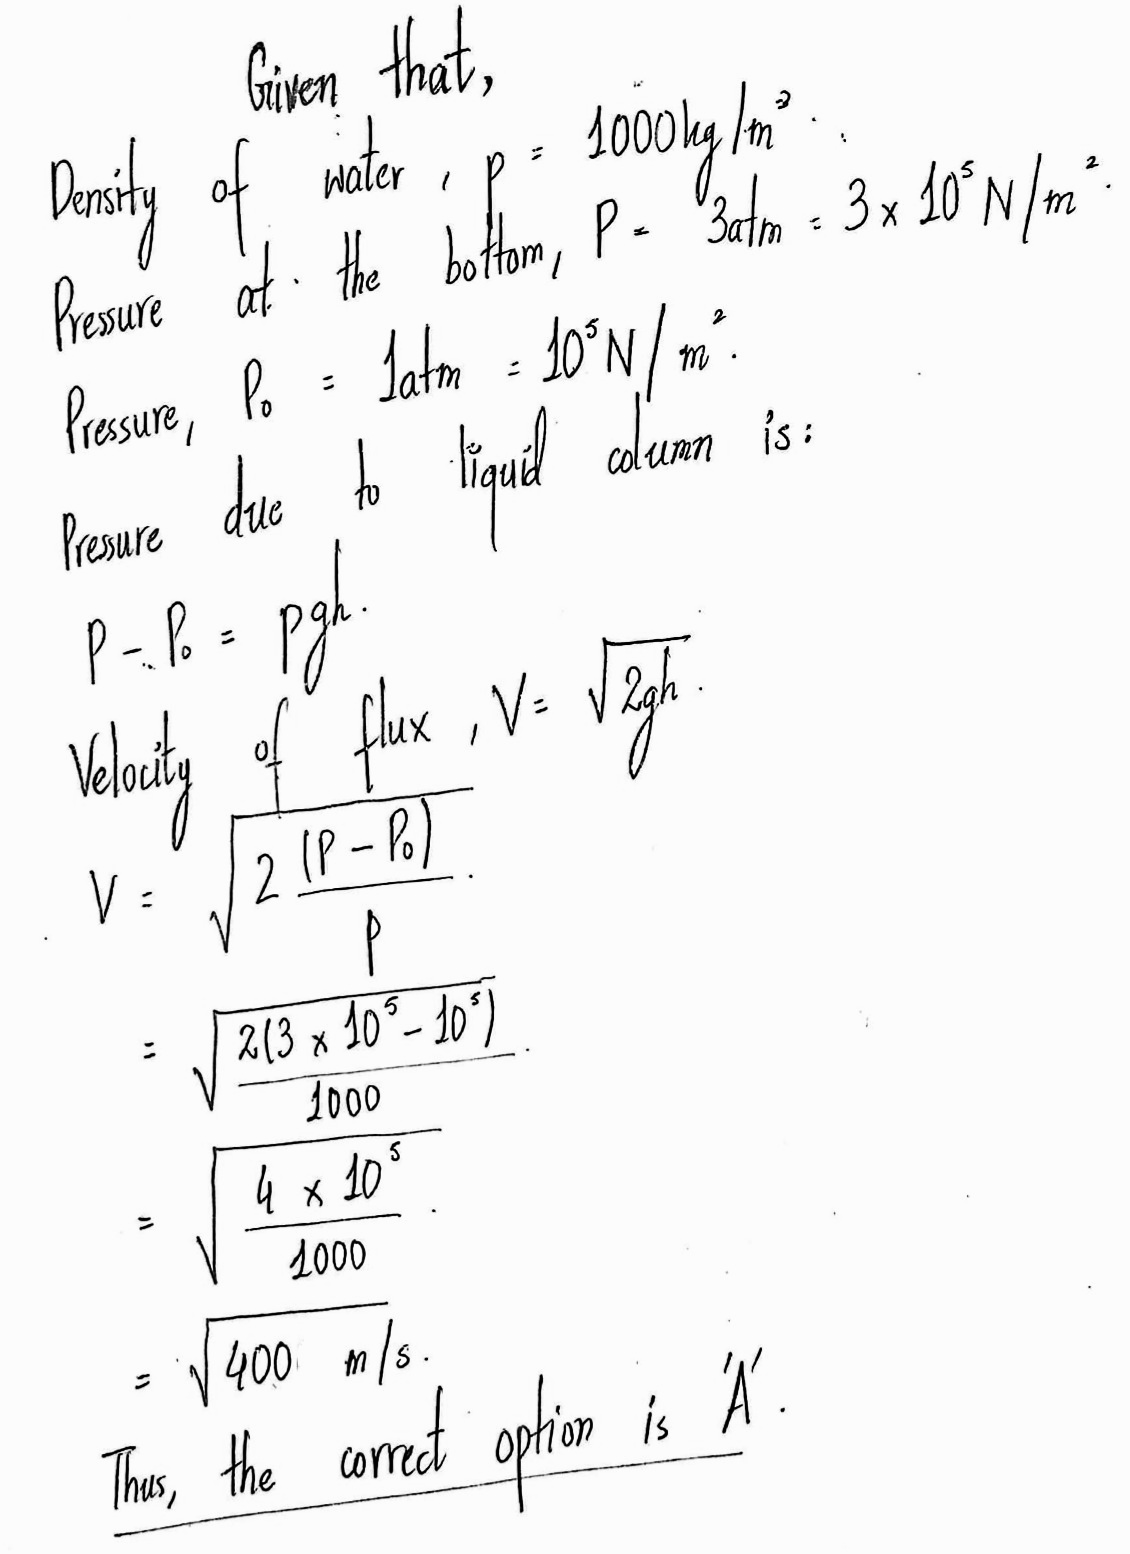 Given that,
Density of water, ρ = 1000kg/m³.
Pressure at the bottom, P = 3atm = 3 × 10⁵ N/m².
Pressure, P₀ = 1atm = 10⁵N/m².
Pressure due to liquid column is:
P - P₀ = ρgh.
Velocity of flux, V = √2gh.
V = √(2 (P - P₀) / ρ).
= √(2(3 × 10⁵ - 10⁵) / 1000).
= √(4 × 10⁵ / 1000).
= √400 m/s.
Thus, the correct option is 'A'.